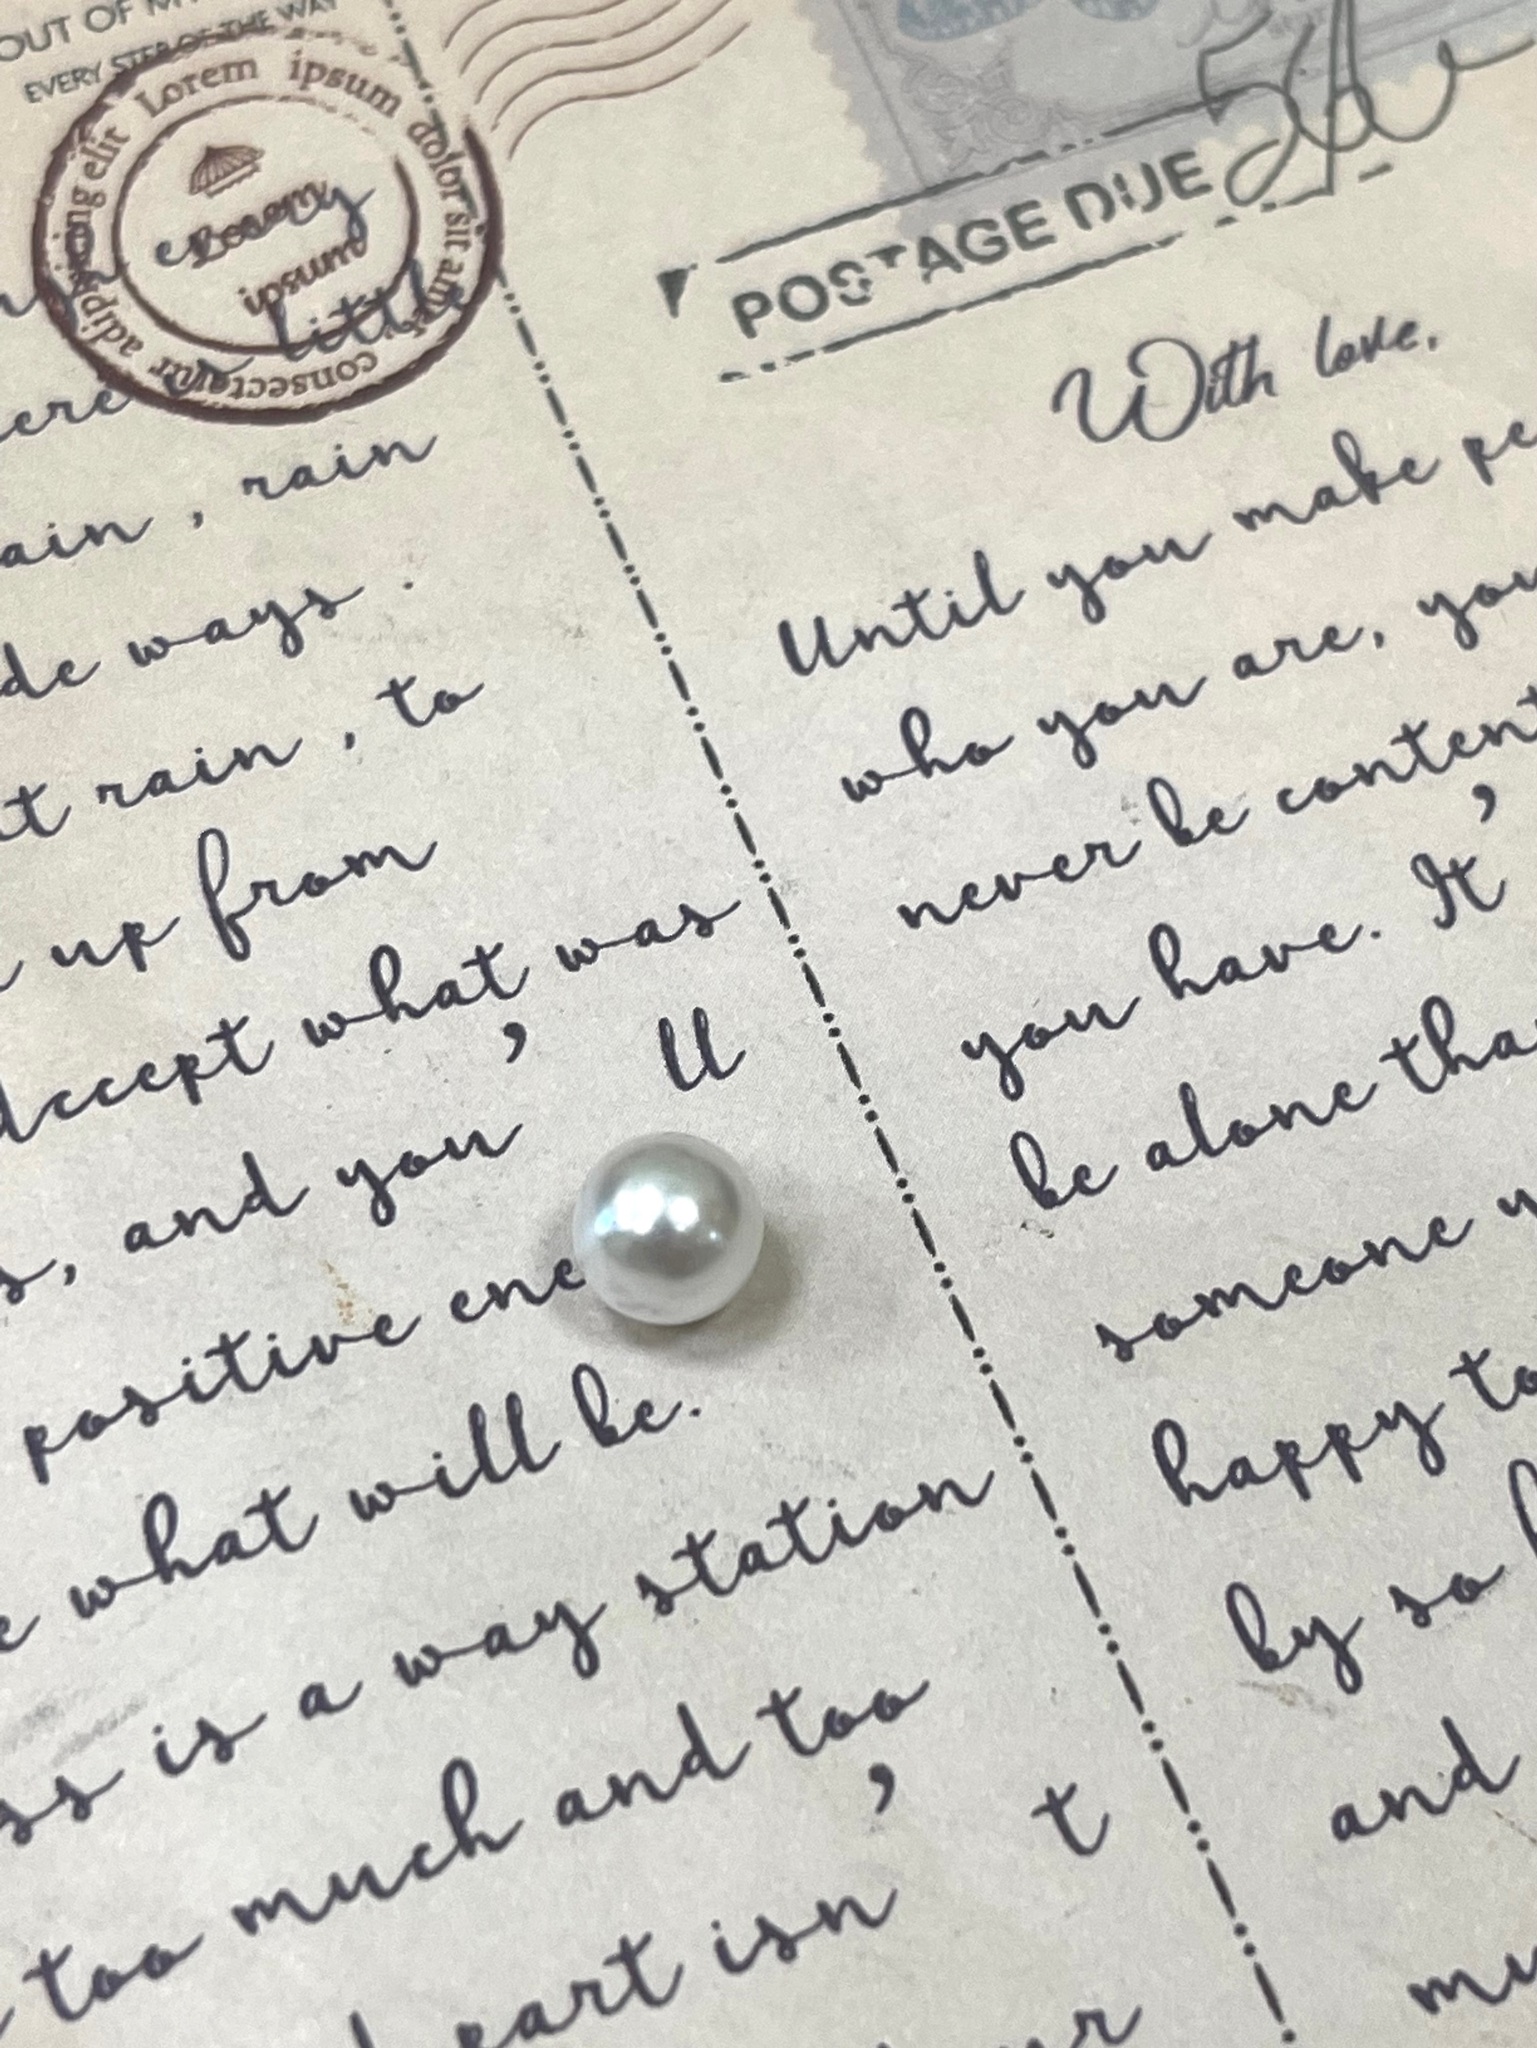 OUT OF
EVERY STEP OF THE WAY
Lorem ipsum dolor sit amet, consectetur adipisicing elit
Lorem
ipsum
every
little
rain , rain
ways .
rain , to
up from
Accept what was
, and you ' ll
positive ene
what will be.
is a way station
too much and too
isn ' t
POSTAGE DUE
With love,
Until you make
who you are,
never be content
you have. It '
be alone
someone
happy to
by so
and